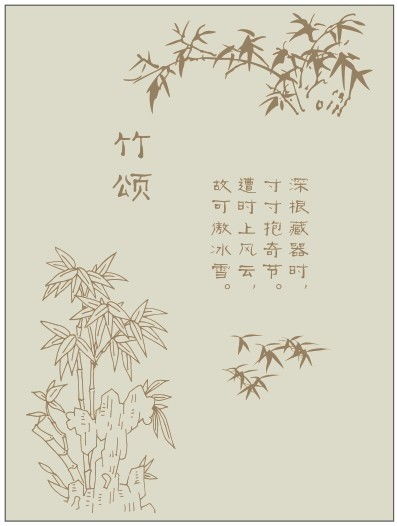 竹颂
深根藏器时，
寸寸抱奇节。
遭时上风云，
故可傲冰雪。